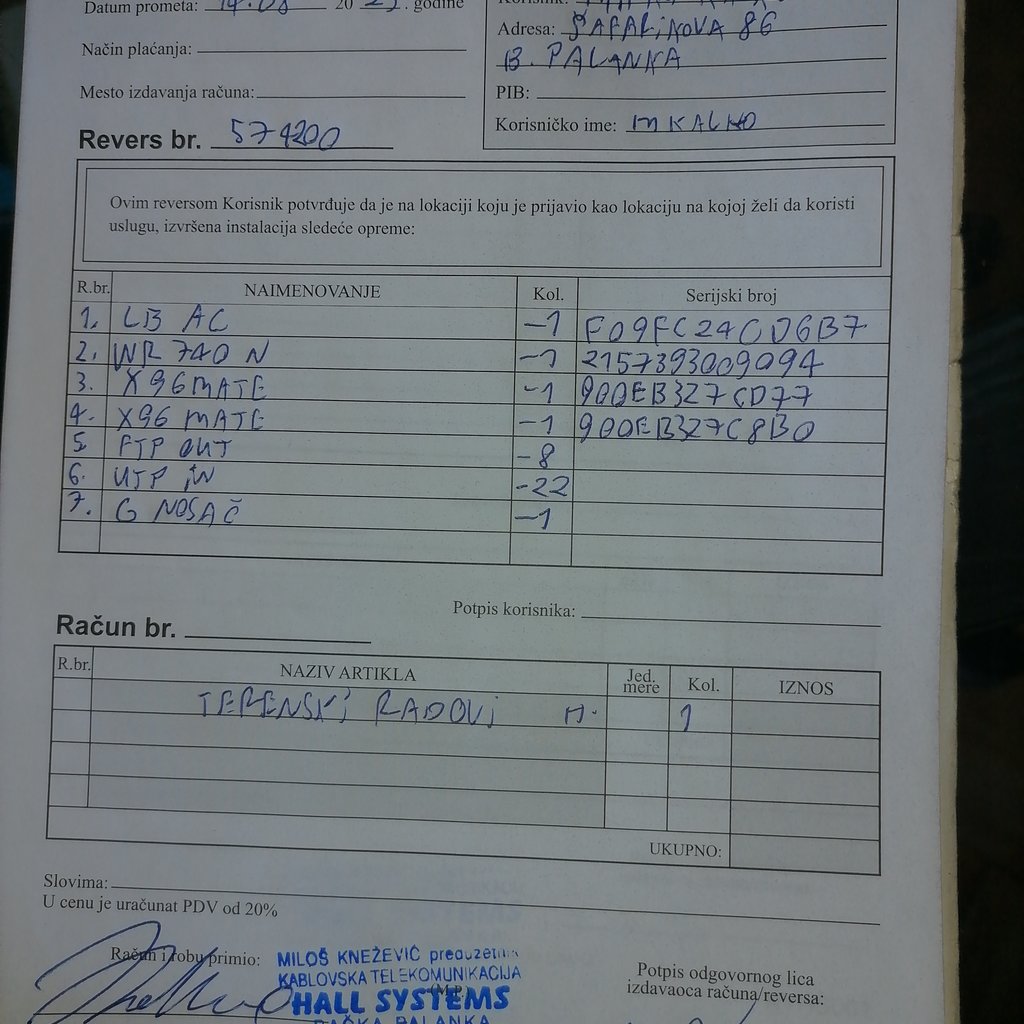 Datum prometa: 14.08 20 25. godine
Korisnik:
Način plaćanja:
Mesto izdavanja računa:
Revers br. 574200
Adresa: ŠAFARIKOVA 86
B. PALANKA
PIB:
Korisničko ime: MKALKO
Ovim reversom Korisnik potvrđuje da je na lokaciji koju je prijavio kao lokaciju na kojoj želi da koristi
uslugu, izvršena instalacija sledeće opreme:
R.br. NAIMENOVANJE Kol. Serijski broj
1. LB AC -1 F09FC24CD6B7
2. WR 740 N -1 2157393009094
3. X96MATE -1 900EB327CD77
4. X96 MATE -1 900EB327C8B0
5 FTP OUT -8
6. UTP IN -22
7. G NOSAČ -1
Potpis korisnika:
Račun br.
R.br. NAZIV ARTIKLA Jed. mere Kol. IZNOS
TERENSKI RADOVI H. 1
UKUPNO:
Slovima:
U cenu je uračunat PDV od 20%
Račun i robu primio:
MILOŠ KNEŽEVIĆ preduzetnik
KABLOVSKA TELEKOMUNIKACIJA
(M.P.)
HALL SYSTEMS
BAČKA PALANKA
Potpis odgovornog lica
izdavaoca računa/reversa: